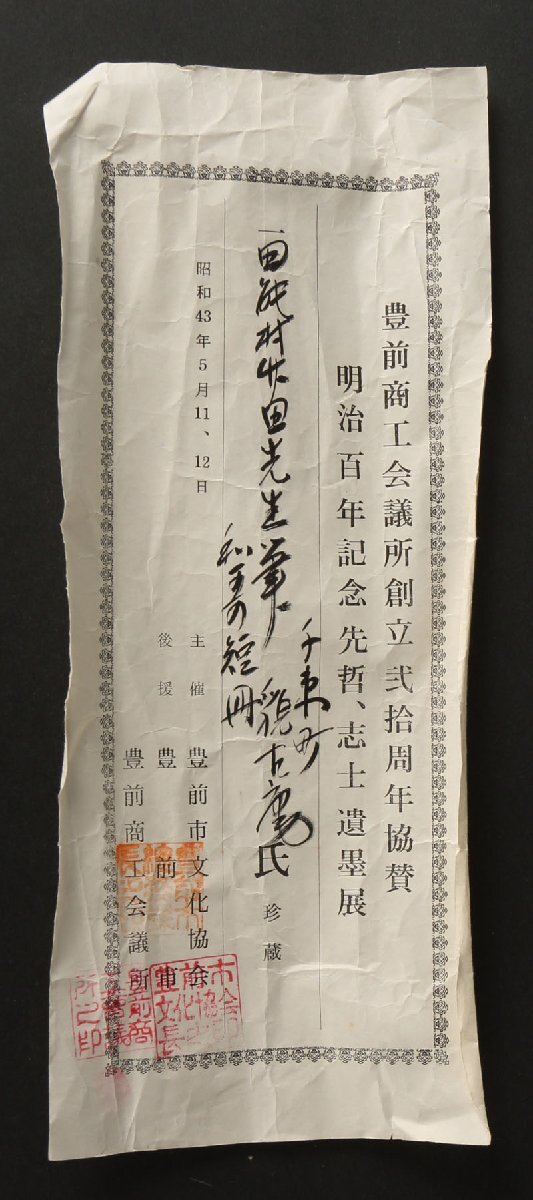 豊前商工会議所創立弐拾周年協賛
明治百年記念先哲、志士遺墨展
一田能村竹田先生筆
和歌短冊
千束町
古廟氏 珍蔵
昭和43年5月11、12日
主催 豊前市文化協会
後援 豊前市
豊前商工会議所